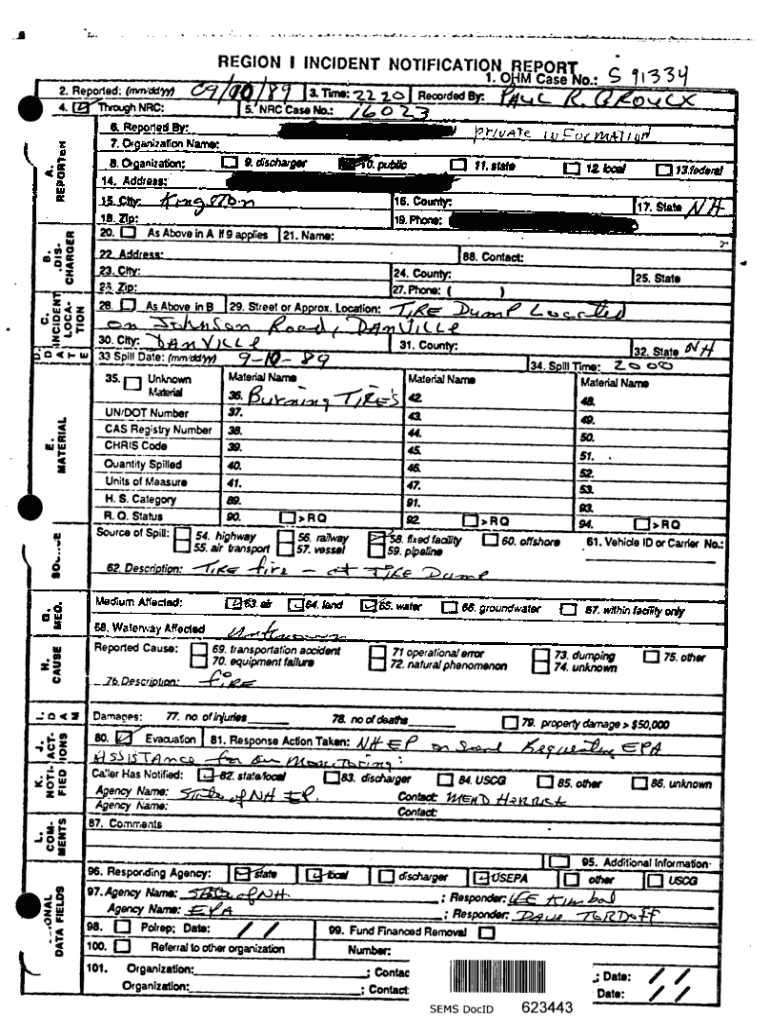 REGION I INCIDENT NOTIFICATION REPORT
1. OHM Case No.: S 91334
2. Reported: (mm/dd/yy) 09/10/89 3. Time: 2220 Recorded By: PAUL R. GROULX
4. Through NRC: 5. NRC Case No.: 16023
A. REPORTER
6. Reported By: PRIVATE INFORMATION
7. Organization Name:
8. Organization: 9. discharger 10. public 11. state 12. local 13. federal
14. Address:
15. City: Kingston 16. County: 17. State NH
18. Zip: 19. Phone:
B. DIS-CHARGER
20. As Above in A if 9 applies 21. Name:
22. Address: 88. Contact:
23. City: 24. County: 25. State
Zip: 27. Phone: ( )
C. INCIDENT LOCA-TION
28. As Above in B 29. Street or Approx. Location: TIRE Dump Located
on Johnson Road, DANVILLE
30. City: DANVILLE 31. County: 32. State NH
D. DATE
33 Spill Date: (mm/dd/yy) 9-10-89 34. Spill Time: 2000
E. MATERIAL
35. Unknown Material Material Name Material Name Material Name
36. Burning TIRE'S 42. 48.
UN/DOT Number 37. 43. 49.
CAS Registry Number 38. 44. 50.
CHRIS Code 39. 45. 51.
Quantity Spilled 40. 46. 52.
Units of Measure 41. 47. 53.
H. S. Category 89. 91. 93.
R. Q. Status 90. >RQ 92. >RQ 94. >RQ
Source of Spill: 54. highway 56. railway 58. fixed facility 60. offshore 61. Vehicle ID or Carrier No.:
55. air transport 57. vessel 59. pipeline
62. Description: TIRE fire - at TIRE Dump
G. MED.
Medium Affected: 63. air 64. land 65. water 66. groundwater 67. within facility only
68. Waterway Affected Unknown
H. CAUSE
Reported Cause: 69. transportation accident 71 operational error 73. dumping 75. other
70. equipment failure 72. natural phenomenon 74. unknown
76. Description: fIRE
I. DAM
Damages: 77. no. of injuries 78. no of deaths 79. property damage > $50,000
J. ACT-IONS
80. Evacuation 81. Response Action Taken: NHEP on Scene Requesting EPA
ASSISTANCE for air monitoring.
K. NOTI-FIED
Caller Has Notified: 82. state/local 83. discharger 84. USCG 85. other 86. unknown
Agency Name: State of NH EP. Contact:
Agency Name: Contact:
L. COM-MENTS
87. Comments
95. Additional Information
DATA FIELDS
96. Responding Agency: state local discharger USEPA other USCG
97. Agency Name: State of NH ; Responder:
Agency Name: EPA ; Responder:
98. Polrep; Date: / / 99. Fund Financed Removal
100. Referral to other organization Number:
101. Organization: ; Contac ; Date: / /
Organization: ; Contact Date: / /
SEMS DocID 623443